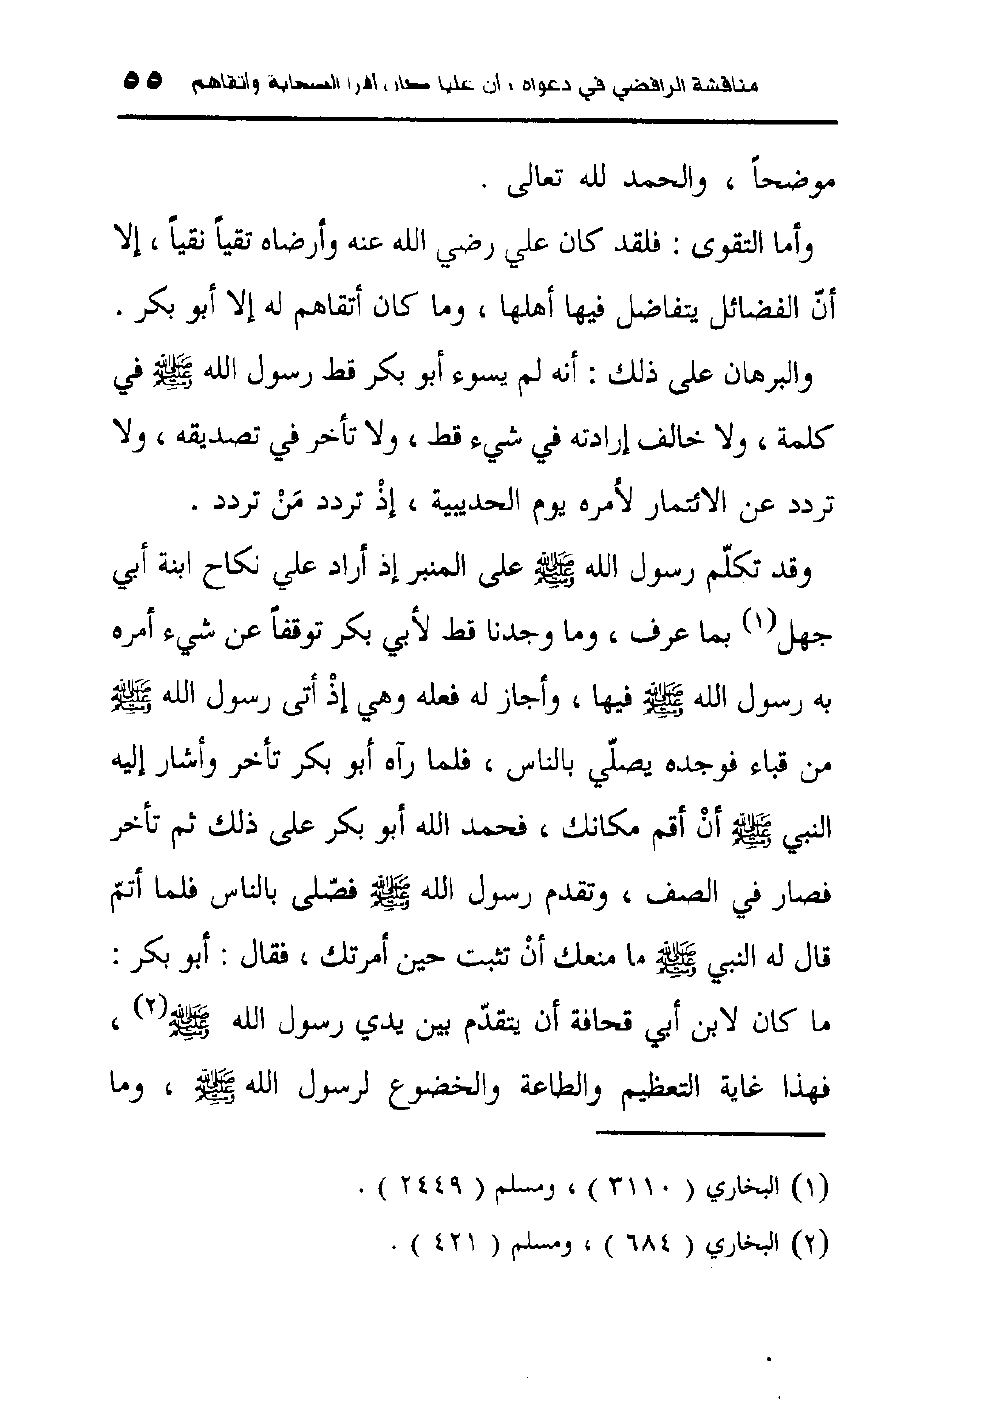 مناقشة الرافضي في دعواه : أن علياً كان أقرأ الصحابة وأتقاهم ٥٥
موضحاً ، والحمد لله تعالى .
وأما التقوى : فلقد كان علي رضي الله عنه وأرضاه تقياً نقياً ، إلا
أنّ الفضائل يتفاضل فيها أهلها ، وما كان أتقاهم له إلا أبو بكر .
والبرهان على ذلك : أنه لم يسوء أبو بكر قط رسول الله ﷺ في
كلمة ، ولا خالف إرادته في شيء قط ، ولا تأخر في تصديقه ، ولا
تردد عن الائتمار لأمره يوم الحديبية ، إذْ تردد مَنْ تردد .
وقد تكلّم رسول الله ﷺ على المنبر إذ أراد علي نكاح ابنة أبي
جهل(١) بما عرف ، وما وجدنا قط لأبي بكر توقفاً عن شيء أمره
به رسول الله ﷺ فيها ، وأجاز له فعله وهي إذْ أتى رسول الله ﷺ
من قباء فوجده يصلّي بالناس ، فلما رآه أبو بكر تأخر وأشار إليه
النبي ﷺ أنْ أقم مكانك ، فحمد الله أبو بكر على ذلك ثم تأخر
فصار في الصف ، وتقدم رسول الله ﷺ فصّلى بالناس فلما أتمّ
قال له النبي ﷺ ما منعك أنْ تثبت حين أمرتك ، فقال : أبو بكر :
ما كان لابن أبي قحافة أن يتقدّم بين يدي رسول الله ﷺ(٢) ،
فهذا غاية التعظيم والطاعة والخضوع لرسول الله ﷺ ، وما
(١) البخاري ( ٣١١٠ ) ، ومسلم ( ٢٤٤٩ ) .
(٢) البخاري ( ٦٨٤ ) ، ومسلم ( ٤٢١ ) .